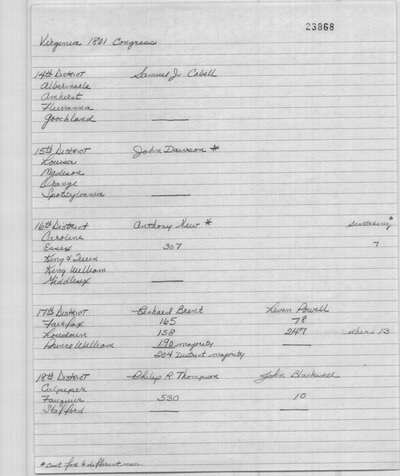 23868
Virginia 1801 Congress
14th District Samuel J. Cabell
Albermarle
Amherst
Fluvanna
Goochland
15th District John Dawson *
Louisa
Madison
Orange
Spotsylvania
16th District Anthony New * Scattering*
Caroline
Essex 307 7
King & Queen
King William
Middlesex
17th District Richard Brent Leven Powell
Fairfax 165 78
Loudoun 158 247 others 13
Prince William 190 majority
204 District majority
18th District Philip R. Thompson John Blackwell
Culpeper
Fauquier 530 10
Stafford
*Cast for 6 different men.